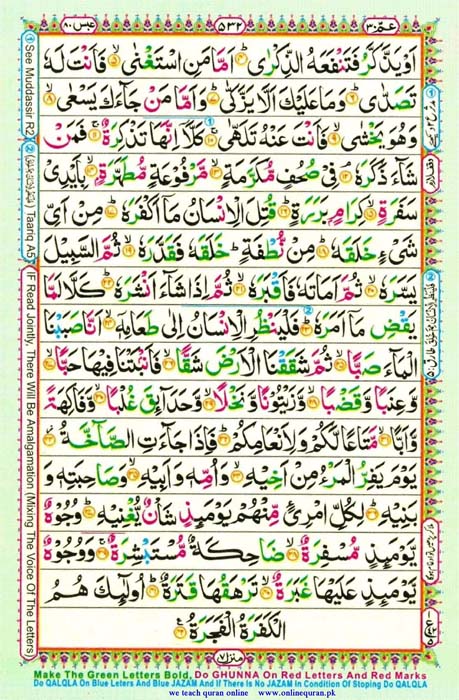 عبس ٨٠
٥٣٢
عمّ ٣٠
اَوْ يَذَّكَّرُ فَتَنْفَعَهُ الذِّكْرٰى ۝٤ اَمَّا مَنِ اسْتَغْنٰى ۝٥ فَاَنْتَ لَهٗ
تَصَدّٰى ۝٦ وَمَا عَلَيْكَ اَلَّا يَزَّكّٰى ۝٧ وَاَمَّا مَنْ جَآءَكَ يَسْعٰى ۝٨
وَهُوَ يَخْشٰى ۝٩ فَاَنْتَ عَنْهُ تَلَهّٰى ۝١٠ كَلَّاۤ اِنَّهَا تَذْكِرَةٌ ۝١١ فَمَنْ
شَآءَ ذَكَرَهٗ ۝١٢ فِيْ صُحُفٍ مُّكَرَّمَةٍ ۝١٣ مَّرْفُوْعَةٍ مُّطَهَّرَةٍۭ ۝١٤ بِاَيْدِيْ
سَفَرَةٍ ۝١٥ كِرَامٍۭ بَرَرَةٍ ۝١٦ قُتِلَ الْاِنْسَانُ مَاۤ اَكْفَرَهٗ ۝١٧ مِنْ اَيِّ
شَيْءٍ خَلَقَهٗ ۝١٨ مِنْ نُّطْفَةٍ خَلَقَهٗ فَقَدَّرَهٗ ۝١٩ ثُمَّ السَّبِيْلَ
يَسَّرَهٗ ۝٢٠ ثُمَّ اَمَاتَهٗ فَاَقْبَرَهٗ ۝٢١ ثُمَّ اِذَا شَآءَ اَنْشَرَهٗ ۝٢٢ كَلَّا لَمَّا
يَقْضِ مَاۤ اَمَرَهٗ ۝٢٣ فَلْيَنْظُرِ الْاِنْسَانُ اِلٰى طَعَامِهٖۤ ۝٢٤ اَنَّا صَبَبْنَا
الْمَآءَ صَبًّا ۝٢٥ ثُمَّ شَقَقْنَا الْاَرْضَ شَقًّا ۝٢٦ فَاَنْۢبَتْنَا فِيْهَا حَبًّا ۝٢٧
وَّعِنَبًا وَّقَضْبًا ۝٢٨ وَّزَيْتُوْنًا وَّنَخْلًا ۝٢٩ وَّحَدَآئِقَ غُلْبًا ۝٣٠ وَّفَاكِهَةً
وَّاَبًّا ۝٣١ مَّتَاعًا لَّكُمْ وَلِاَنْعَامِكُمْ ۝٣٢ فَاِذَا جَآءَتِ الصَّآخَّةُ ۝٣٣
يَوْمَ يَفِرُّ الْمَرْءُ مِنْ اَخِيْهِ ۝٣٤ وَاُمِّهٖ وَاَبِيْهِ ۝٣٥ وَصَاحِبَتِهٖ وَ
بَنِيْهِ ۝٣٦ لِكُلِّ امْرِئٍ مِّنْهُمْ يَوْمَئِذٍ شَاْنٌ يُّغْنِيْهِ ۝٣٧ وُجُوْهٌ
يَّوْمَئِذٍ مُّسْفِرَةٌ ۝٣٨ ضَاحِكَةٌ مُّسْتَبْشِرَةٌ ۝٣٩ وَوُجُوْهٌ
يَّوْمَئِذٍ عَلَيْهَا غَبَرَةٌ ۝٤٠ تَرْهَقُهَا قَتَرَةٌ ۝٤١ اُولٰٓئِكَ هُمُ
الْكَفَرَةُ الْفَجَرَةُ ۝٤٢
منزل ٧
① See Muddassir R2 ② Taariq A5 IF Read Jointly, There Will Be Amalgamation (Mixing The Voice Of The Letters
Make The Green Letters Bold, Do GHUNNA On Red Letters And Red Marks
Do QALQLA On Blue Leters And Blue JAZAM And If There Is No JAZAM In Condition Of Stoping Do QALQLA
we teach quran online www.onlinequran.pk